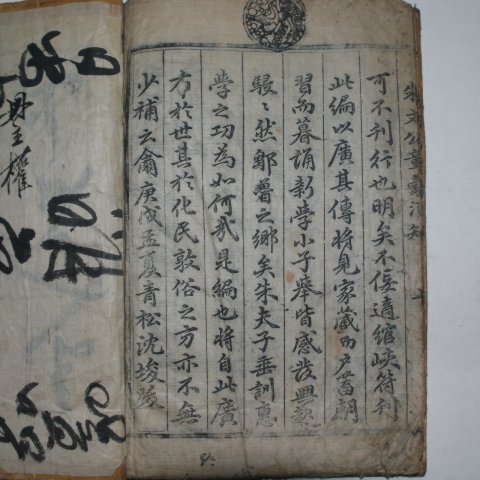 朱文公童蒙須知
可不刊行也明矣不佞適綰峽符刊
此編以廣其傳將見家藏而戶蓄朝
習而暮誦新學小子擧皆感發興起
駸〻然鄒魯之鄕矣朱夫子垂訓惠
學之功爲如何哉是編也將自此廣
方於世其於化民敦俗之方亦不無
少補云爾庚戌孟夏靑松沈埈跋
主權